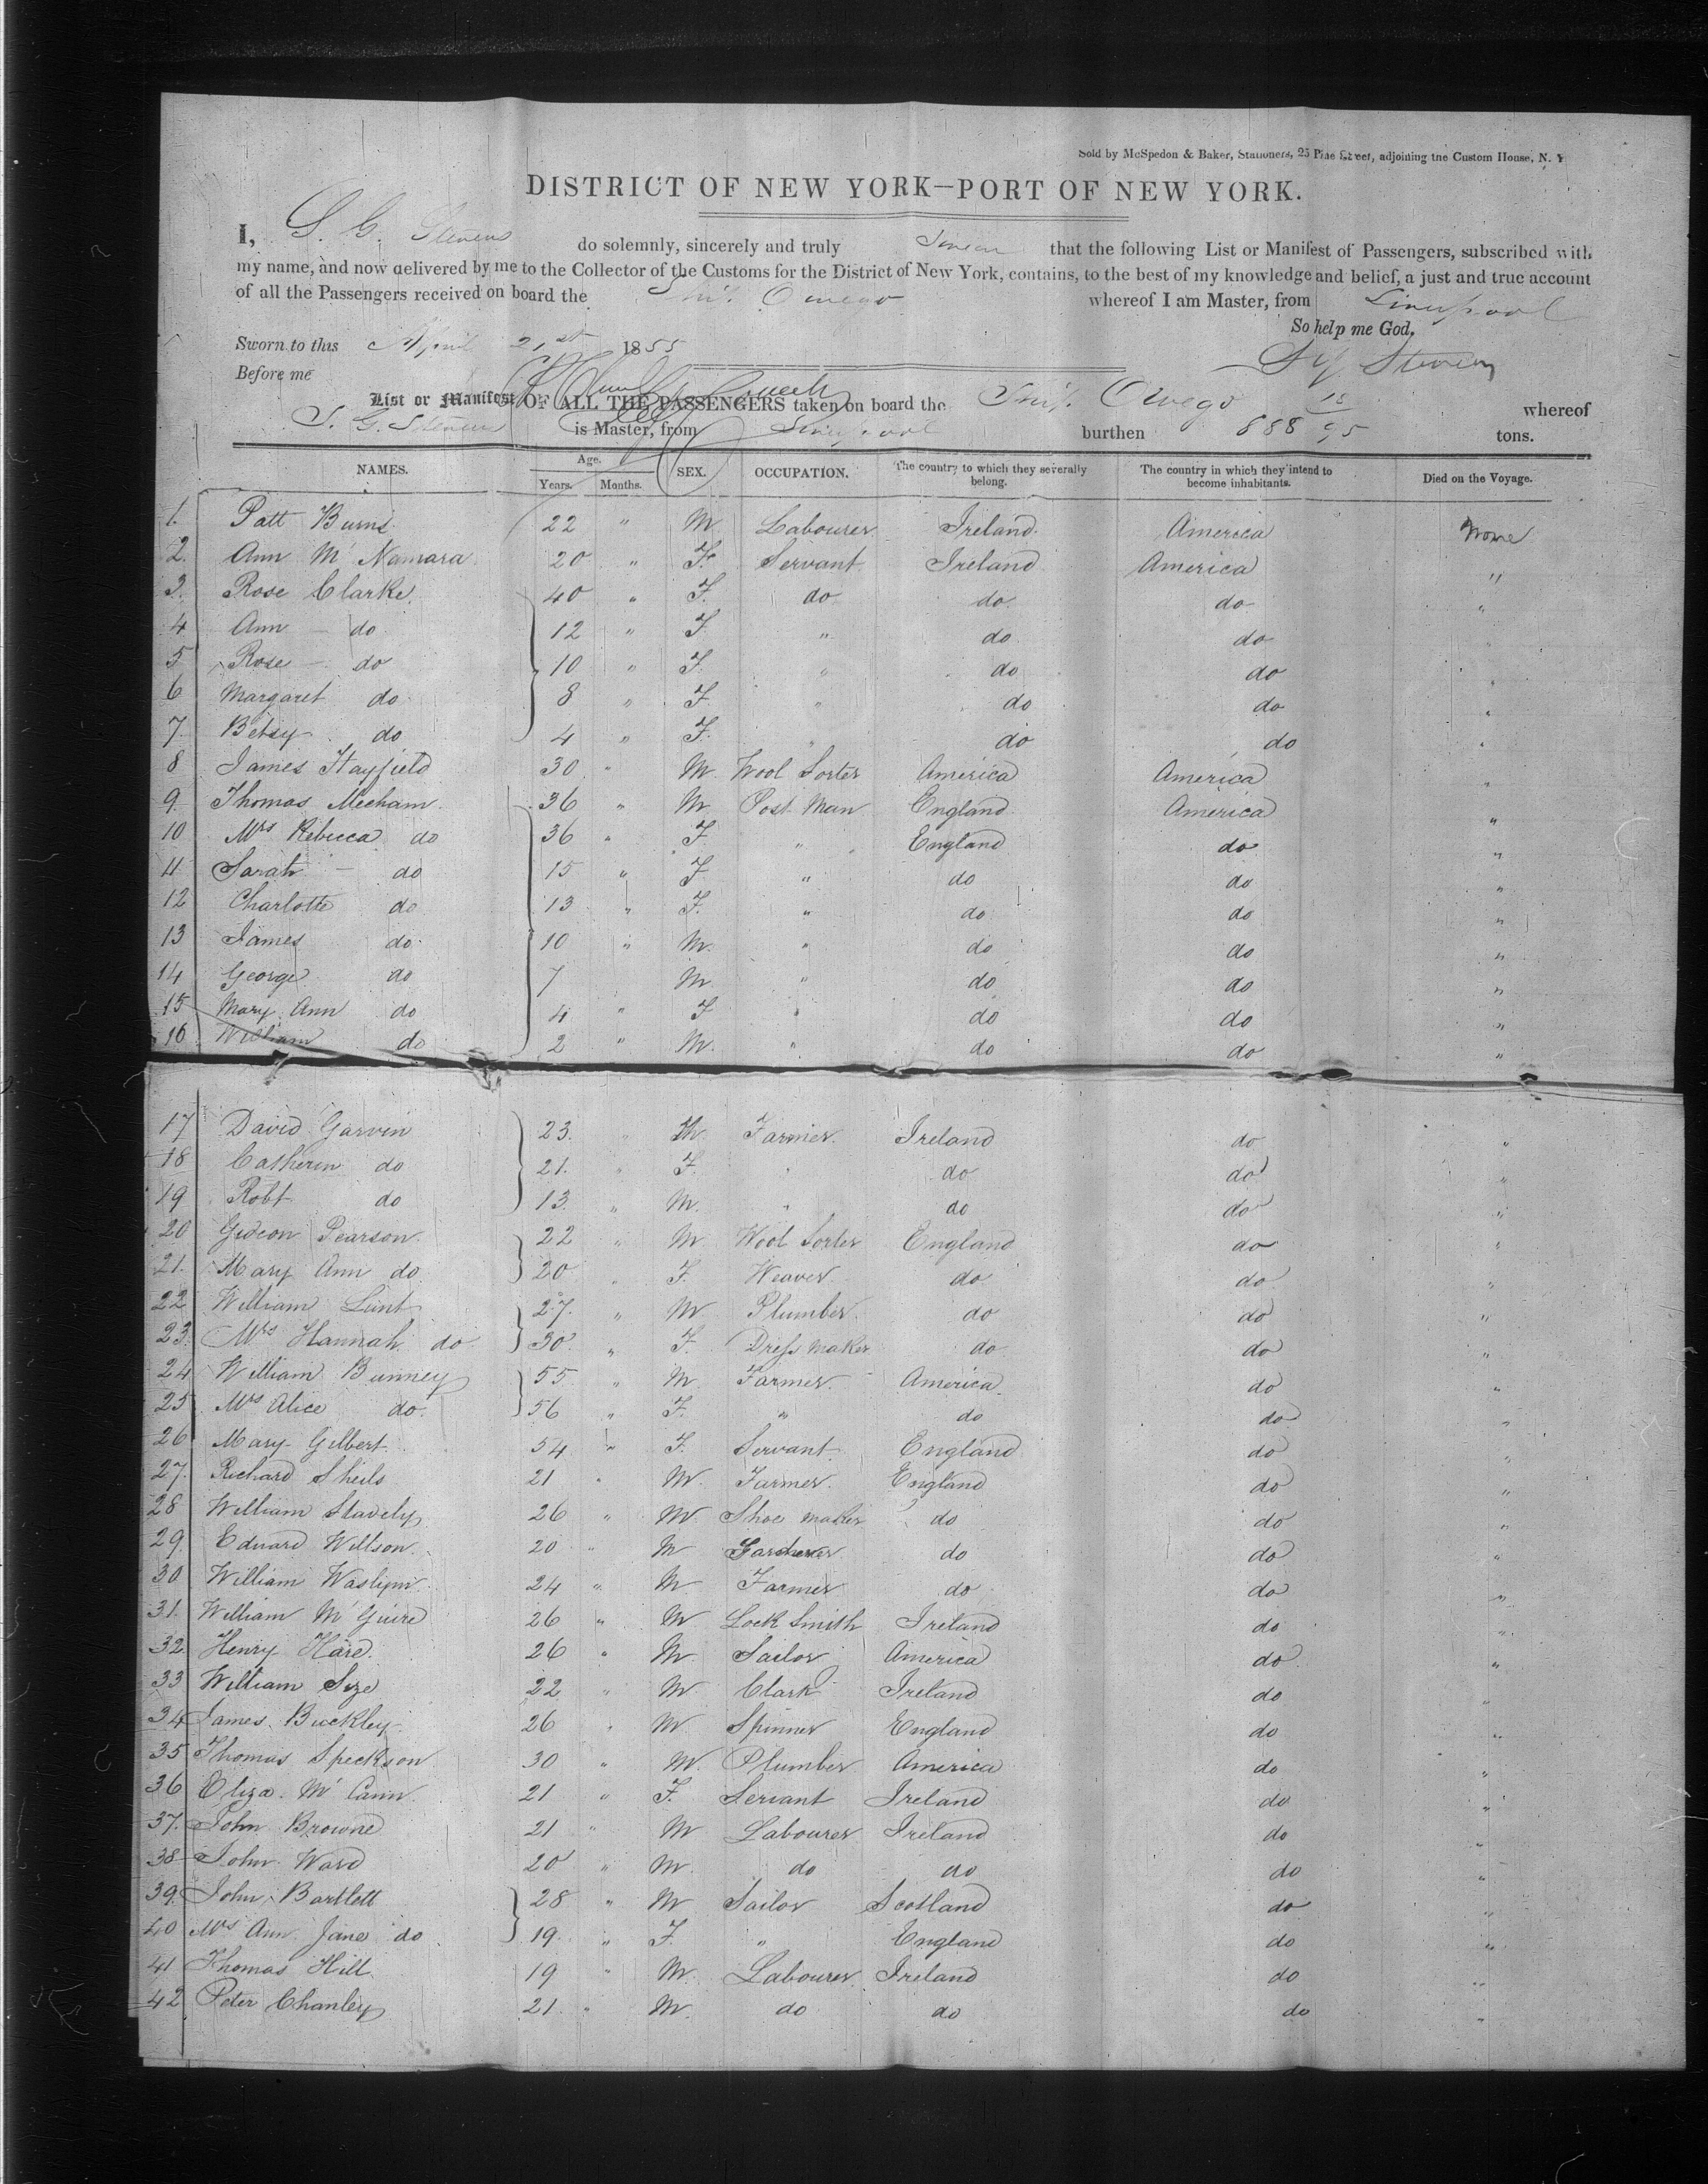 Sold by McSpedon & Baker, Stationers, 25 Pine Street, adjoining the Custom House, N. Y
DISTRICT OF NEW YORK—PORT OF NEW YORK.
I, S. G. Stevens do solemnly, sincerely and truly Swear that the following List or Manifest of Passengers, subscribed with
my name, and now delivered by me to the Collector of the Customs for the District of New York, contains, to the best of my knowledge and belief, a just and true account
of all the Passengers received on board the Ship Owego whereof I am Master, from Liverpool
So help me God.
Sworn to this April 21st 1855
S G Stevens
Before me
List or Manifest OF ALL THE PASSENGERS taken on board the Ship Owego whereof
S. G. Stevens is Master, from Liverpool burthen 888 18/95 tons.
NAMES. Age. Years. Months. SEX. OCCUPATION. The country to which they severally belong. The country in which they intend to become inhabitants. Died on the Voyage.
1. Patt Burns 22 " M Labourer Ireland America None
2. Ann McNamara 20 " F. Servant Ireland America "
3. Rose Clarke 40 " F. do do do "
4 Ann — do 12 " F " do do "
5 Rose — do 10 " F. " do do "
6 Margaret do 8 " F " do do "
7 Betsy do 4 " F. " do do "
8 James Hayfield 30 " M. Wool Sorter America America "
9. Thomas Mecham 36 " M Post Man England America "
10 Mrs Rebecca do 36 " F. " England do "
11 Sarah — do 15 " F " do do "
12 Charlotte do 13 " F. " do do "
13 James do 10 " M. " do do "
14 George do 7 M " do do "
15 Mary Ann do 4 " F " do do "
16 William do 2 " M. " do do "
17 David Garvin 23. " M. Farmer. Ireland do "
18 Catherin do 21. " F. " do do "
19 Robt do 13. " M. " do do "
20 Gideon Pearson. 22 " M Wool Sorter England do "
21. Mary Ann do 20 " F. Weaver. do do "
22 William Lunt 27. " M Plumber. do do "
23. Mrs Hannah do 30. " F. Dress maker do do "
24 William Bunney 55 " M Farmer. America do "
25 Mrs Alice do. 56 " F. " do do "
26 Mary Gilbert 54 " F. Servant England do "
27. Richard Sheils 21 " M. Farmer. England do "
28 William Stavely 26 " M Shoe maker do do "
29. Edward Willson. 20 " M Gardener do do "
30 William Waslym 24 " M Farmer do do "
31. William McGuire 26 " M Lock Smith Ireland do "
32. Henry Hare. 26 " M Sailor America do "
33 William Size 22 " M Clark Ireland do "
34 James Buckley 26 " M Spinner England do "
35 Thomas Speckson 30 " M. Plumber America do "
36 Eliza McCann. 21 " F. Servant Ireland do "
37. John Browne 21 " M Labourer Ireland do "
38 John Ward 20 " M. do do do "
39. John Bartlett 28 " M Sailor Scotland do "
40 Mrs Ann Jane do 19. " F. " England do "
41 Thomas Hill 19 " M. Labourer Ireland do "
42 Peter Chanley 21. " M. do do do "